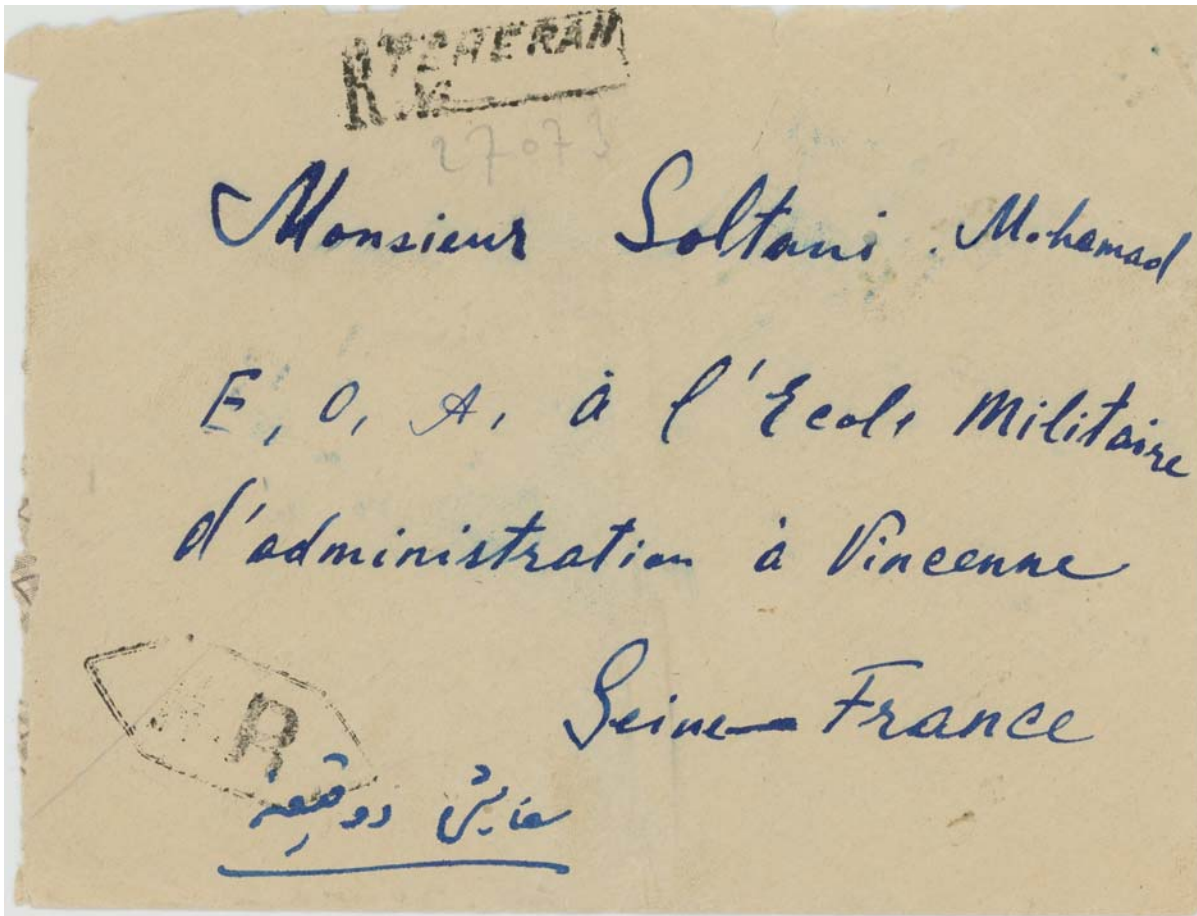 R TEHERAN
No
27073
Monsieur Soltani Mohamad
E, O, A, à l'Ecole Militaire
d'administration à Vincenne
Seine — France
R
دو قبضه